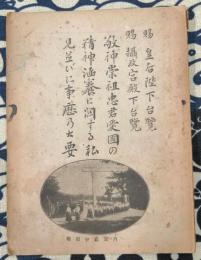 賜 皇后陛下台覧
賜 摂政宮殿下台覧
敬神崇祖忠君愛国の
精神涵養に関する私
見並びに事歴の大要